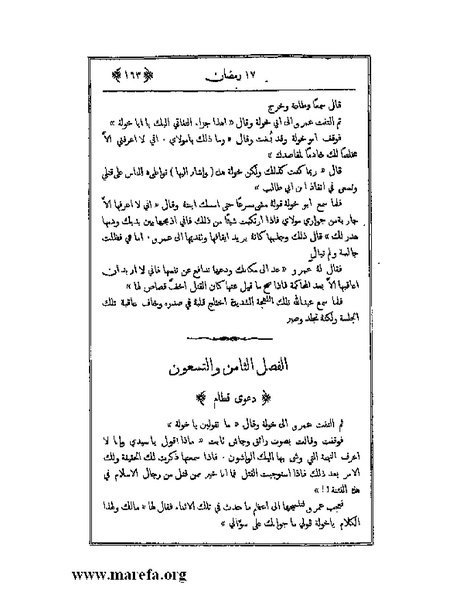 ١٧ رمضان ﴿ ١٦٣ ﴾
قال سمعًا وطاعة وخرج
ثم التفت عمرو الى ابي خولة وقال « اهذا جزاء التفاتي اليك يا ابا خولة »
فوقف ابو خولة وقد بُغت وقال « وما ذلك يامولاي . اني لا اعرفني الاَّ
مخلصًا لك خادمًا لمقاصدك »
قال « ربما كنت كذلك ولكن خولة هذه ( واشار اليها ) تواطئ الناس على قتلي
وتسعى في انقاذ ابن ابي طالب »
فلما سمع ابو خولة قوله مشى مسرعًا حتى امسك ابنته وقال « اني لا اعرفها الاَّ
جارية من جواري مولاي فاذا ارتكبت شيئًا من ذلك فاني اذبحها بين يديك ودمها
هدر لك » قال ذلك وجذبها كانه يريد ايقافها وتقديمها الى عمرو . اما هي فظلت
جالسة ولم تبالِ
فقال له عمرو « عد الى مكانك ودعها تدافع عن نفسها فاني لا اريد ان
اعاقبها الاَّ بعد المحاكمة فاذا صح ما قيل عنها كان القتل اخفّ قصاص لها »
فلما سمع عبدالله تلك اللهجة الشديدة اختلج قلبه في صدره وخاف عاقبة تلك
الجلسة ولكنه تجلد وصبر
الفصل الثامن والتسعون
﴿ دعوى قطام ﴾
ثم التفت عمرو الى خولة وقال « ما تقولين يا خولة »
فوقفت وقالت بصوت رائق وجاش ثابت « ماذا اقول ياسيدي وانا لا
اعرف التهمة التي وشى بها اليك الواشون . فاذا سمعتها ذكرت لك الحقيقة ولك
الامر بعد ذلك فاذا استوجبت القتل فما انا خير ممن قتل من رجال الاسلام في
هذه الفتنة !! »
فعجب عمرو لتلميحها الى اعظم ما حدث في تلك الاثناء فقال لها « مالك ولهذا
الكلام ياخولة قولي ما جوابك على سؤالي »
www.marefa.org